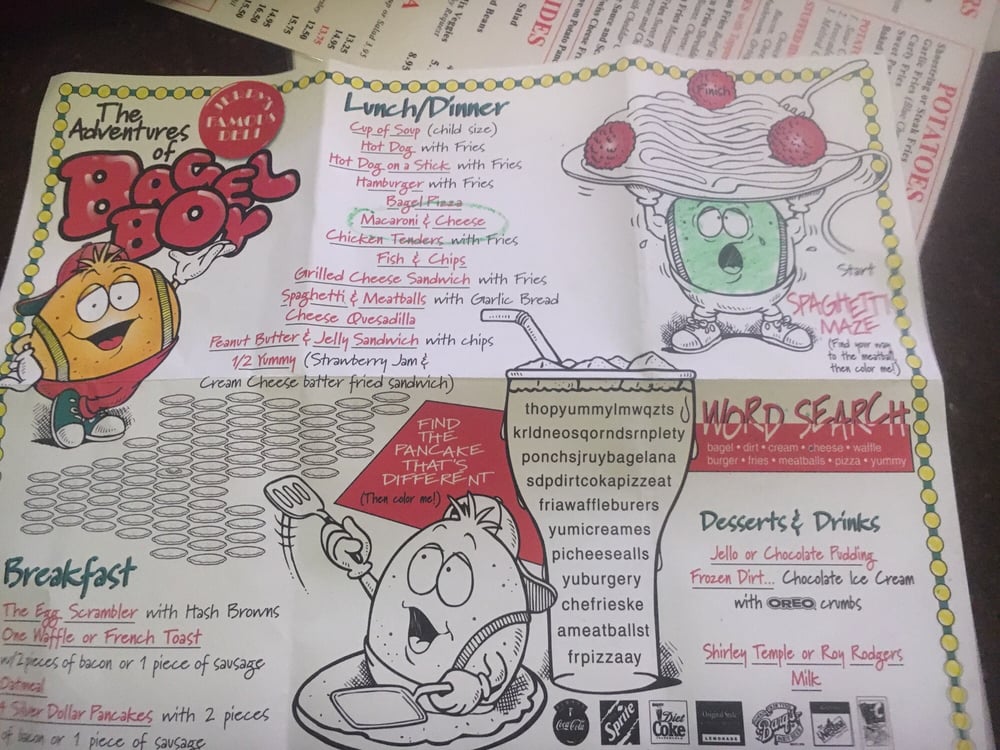 The
Adventures
of
BAGEL
BOY
JERRY'S
FAMOUS
DELI
Lunch/Dinner
Cup of Soup (child size)
Hot Dog with Fries
Hot Dog on a Stick with Fries
Hamburger with Fries
Bagel Pizza
Macaroni & Cheese
Chicken Tenders with Fries
Fish & Chips
Grilled Cheese Sandwich with Fries
Spaghetti & Meatballs with Garlic Bread
Cheese Quesadilla
Peanut Butter & Jelly Sandwich with chips
1/2 Yummy (Strawberry Jam &
Cream Cheese batter fried sandwich)
Finish
Start
SPAGHETTI
MAZE
(Find your way
to the meatball,
then color me!)
FIND
THE
PANCAKE
THAT'S
DIFFERENT
(Then color me!)
thopyummylmwqzts
krldneosqorndsrnplety
ponchsjruybagelana
sdpdirtcokapizzeat
friawaffleburers
yumicreames
picheesealls
yuburgery
chefrieske
ameatballst
frpizzaay
WORD SEARCH
bagel • dirt • cream • cheese • waffle
burger • fries • meatballs • pizza • yummy
Desserts & Drinks
Jello or Chocolate Pudding
Frozen Dirt... Chocolate Ice Cream
with OREO crumbs
Shirley Temple or Roy Rodgers
Milk
Breakfast
The Egg Scrambler with Hash Browns
One Waffle or French Toast
w/2 pieces of bacon or 1 piece of sausage
Oatmeal
4 Silver Dollar Pancakes with 2 pieces
of bacon or 1 piece of sausage
Coca-Cola
Sprite
Diet
Coke
Original Style
LEMONADE
Barq's
POTATOES
SIDES
Shoestring or Steak Fries
Garlic Fries
Curly Fries
13.25
14.95
13.75
12.50
16.50
14.95
15.75
15.50
8.95